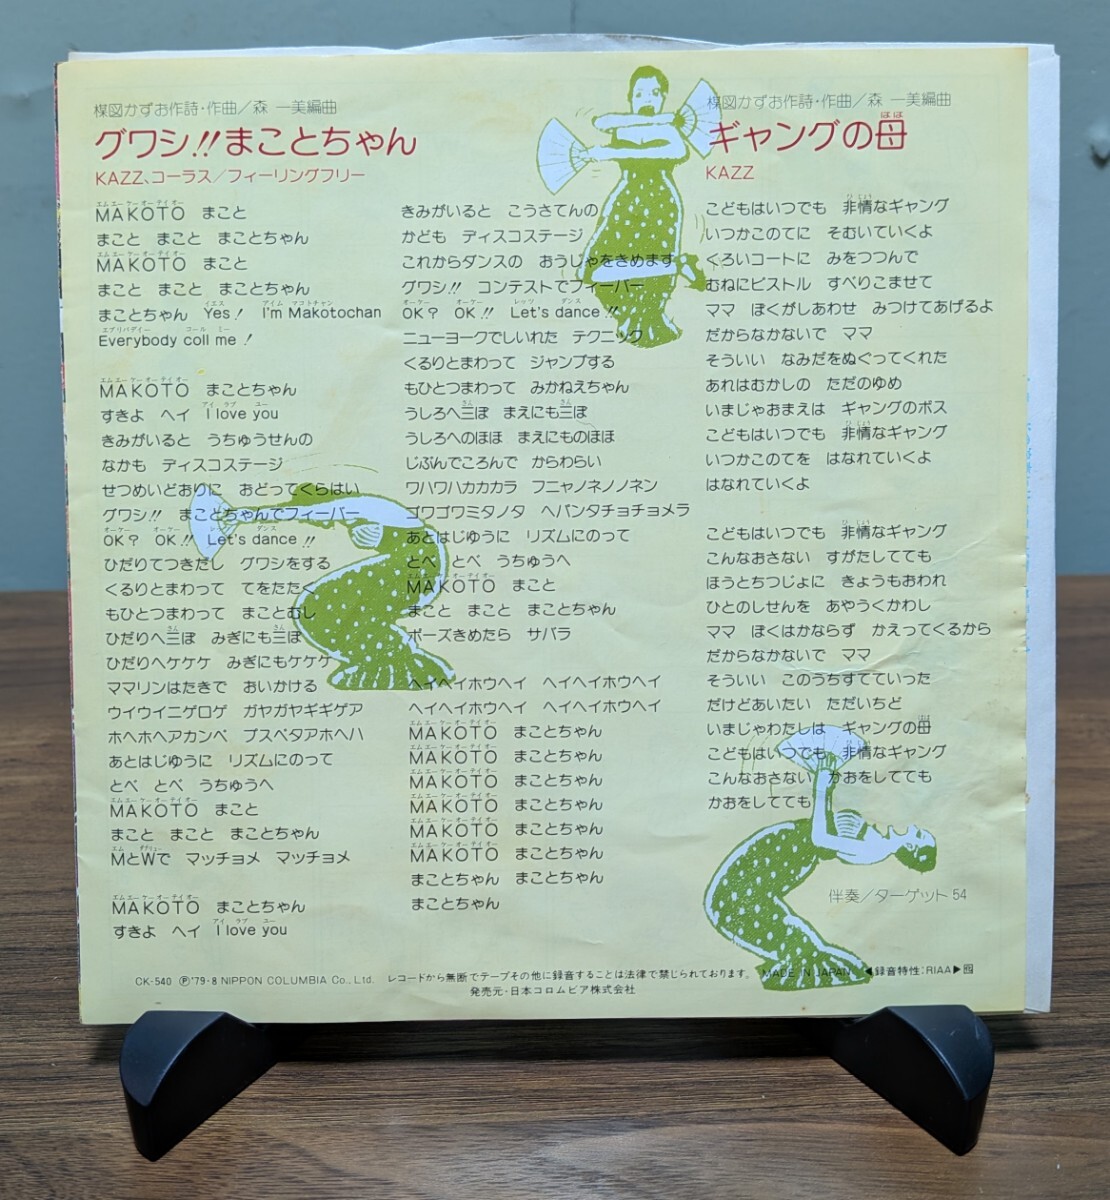 楳図かずお作詩・作曲/森 一美編曲
グワシ!!まことちゃん
KAZZ、コーラス/フィーリングフリー
エムエーケーオーティオー
MAKOTO まこと
まこと まこと まことちゃん
エムエーケーオーティオー
MAKOTO まこと
まこと まこと まことちゃん
イエス アイム マコトチャン
まことちゃん Yes! I'm Makotochan
エブリバディー コール ミー
Everybody coll me!
エムエーケーオーティオー
MAKOTO まことちゃん
アイ ラブ ユー
すきよ ヘイ I love you
きみがいると うちゅうせんの
なかも ディスコステージ
せつめいどおりに おどってくらはい
グワシ!! まことちゃんでフィーバー
オーケー オーケー レッツ ダンス
OK? OK!! Let's dance!!
ひだりてつきだし グワシをする
くるりとまわって てをたたく
もひとつまわって まことむし
さん さん
ひだりへ三ぽ みぎにも三ぽ
ひだりへケケケ みぎにもケケケ
ママリンはたきで おいかける
ウイウイニゲロゲ ガヤガヤギギゲア
ホヘホヘアカンベ ブスベタアホヘハ
あとはじゆうに リズムにのって
とべ とべ うちゅうへ
エムエーケーオーティオー
MAKOTO まこと
まこと まこと まことちゃん
エム ダブリュー
MとWで マッチョメ マッチョメ
エムエーケーオーティオー
MAKOTO まことちゃん
アイ ラブ ユー
すきよ ヘイ I love you
きみがいると こうさてんの
かども ディスコステージ
これからダンスの おうじゃをきめます
グワシ!! コンテストでフィーバー
オーケー オーケー レッツ ダンス
OK? OK!! Let's dance!!
ニューヨークでしいれた テクニック
くるりとまわって ジャンプする
もひとつまわって みかねえちゃん
さん さん
うしろへ三ぽ まえにも三ぽ
うしろへのほほ まえにものほほ
じぶんでころんで からわらい
ワハワハカカカラ フニャノネノノネン
ゴワゴワミタノタ ヘバンタチョチョメラ
あとはじゆうに リズムにのって
とべ とべ うちゅうへ
エムエーケーオーティオー
MAKOTO まこと
まこと まこと まことちゃん
ポーズきめたら サバラ
ヘイヘイホウヘイ ヘイヘイホウヘイ
ヘイヘイホウヘイ ヘイヘイホウヘイ
エムエーケーオーティオー
MAKOTO まことちゃん
エムエーケーオーティオー
MAKOTO まことちゃん
エムエーケーオーティオー
MAKOTO まことちゃん
エムエーケーオーティオー
MAKOTO まことちゃん
エムエーケーオーティオー
MAKOTO まことちゃん
エムエーケーオーティオー
MAKOTO まことちゃん
まことちゃん まことちゃん
まことちゃん
楳図かずお作詩・作曲/森 一美編曲
はは
ギャングの母
KAZZ
ひじょう
こどもはいつでも 非情なギャング
いつかこのてに そむいていくよ
くろいコートに みをつつんで
むねにピストル すべりこませて
ママ ぼくがしあわせ みつけてあげるよ
だからなかないで ママ
そういい なみだをぬぐってくれた
あれはむかしの ただのゆめ
いまじゃおまえは ギャングのボス
ひじょう
こどもはいつでも 非情なギャング
いつかこのてを はなれていくよ
はなれていくよ
ひじょう
こどもはいつでも 非情なギャング
こんなおさない すがたしてても
ほうとちつじょに きょうもおわれ
ひとのしせんを あやうくかわし
ママ ぼくはかならず かえってくるから
だからなかないで ママ
そういい このうちすてていった
だけどあいたい ただいちど
はは
いまじゃわたしは ギャングの母
ひじょう
こどもはいつでも 非情なギャング
こんなおさない かおをしてても
かおをしてても
伴奏/ターゲット54
CK-540 Ⓟ'79・8 NIPPON COLUMBIA Co., Ltd. レコードから無断でテープその他に録音することは法律で禁じられております。 MADE IN JAPAN ◀録音特性:RIAA▶
発売元・日本コロムビア株式会社